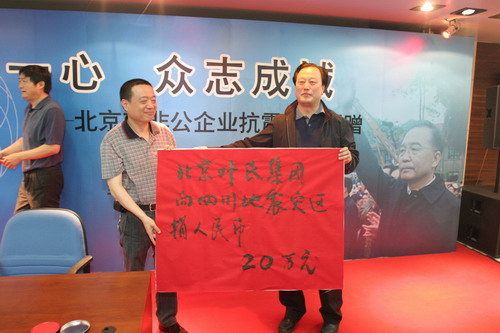 一心 众志成城
北京 非公企业抗震 赠
北京叶氏集团
向四川地震灾区
捐人民币
20万元